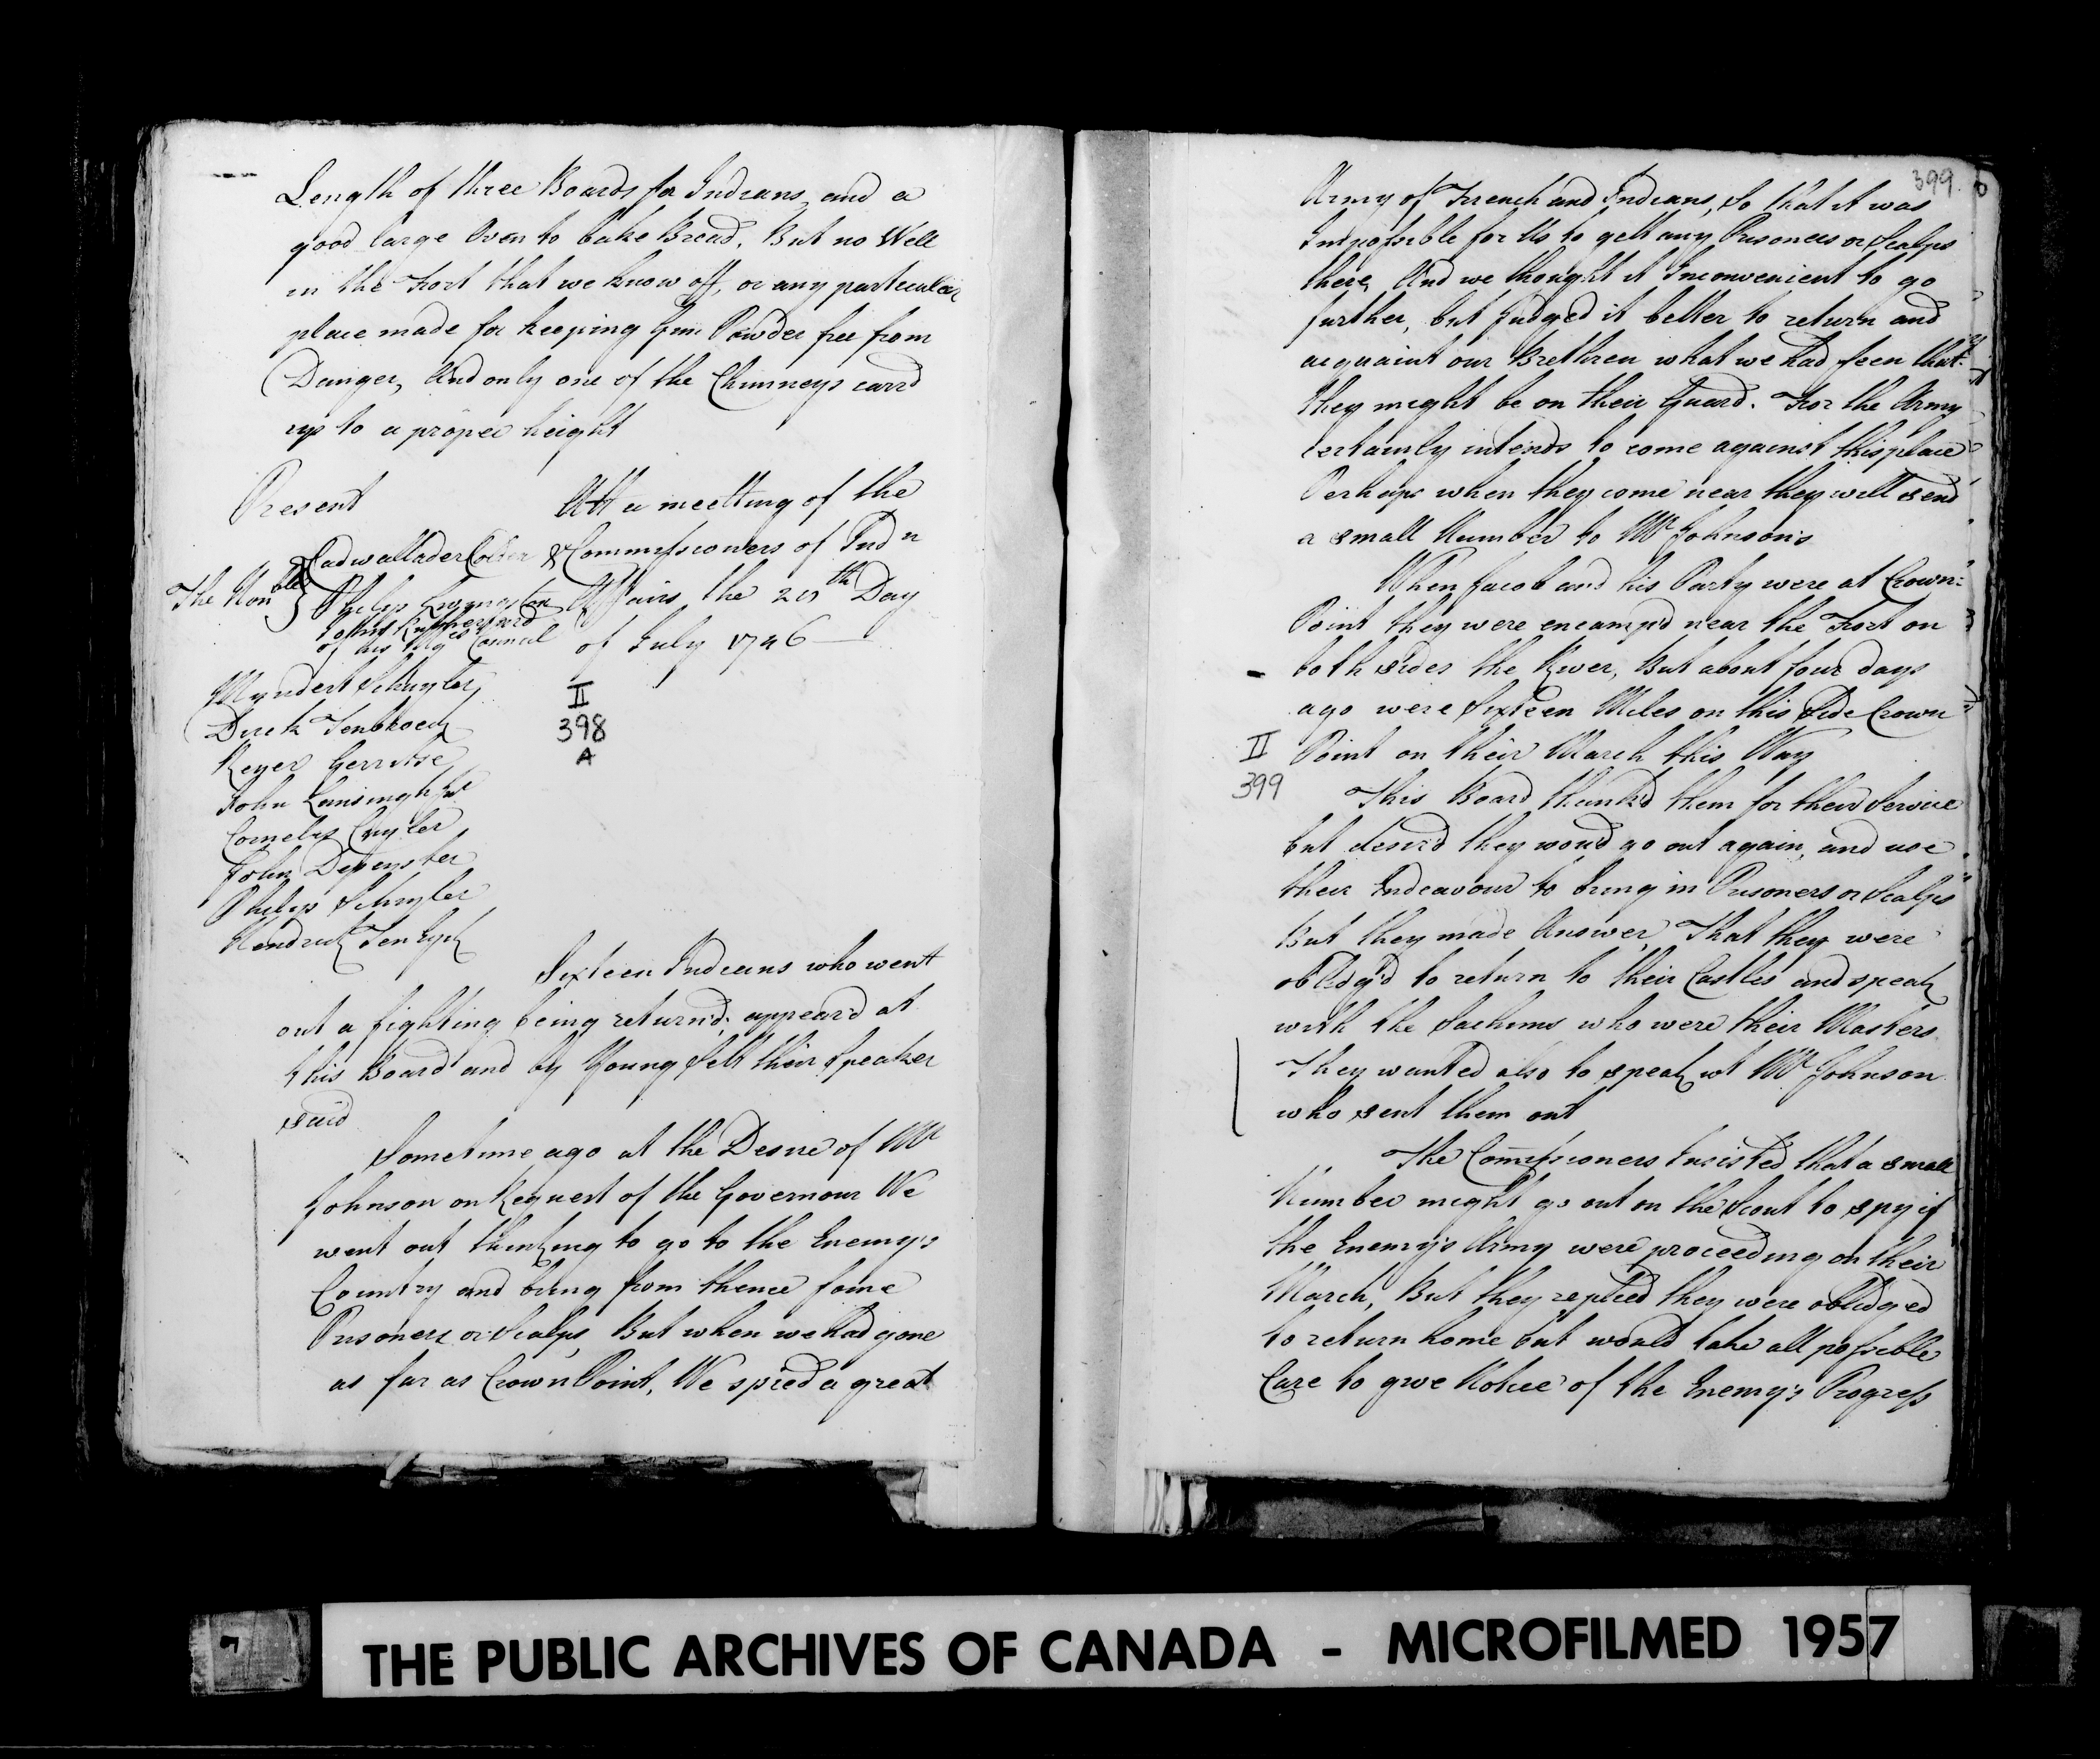 Length of three Boards for Indians, and a
good large Oven to bake Bread, But no Well
in the Fort that we know off, or any particular
place made for keeping Gun Powder free from
Danger, And only one of the Chimneys carrd
up to a proper height
Present
Att a meetting of the
Commissioners of Ind n
Affairs the 20th Day
of July 1746
The Honble
Cadwallader Colden &
Philip Livingston
John Rutherfurd
of his Majties Council
Myndert Schuyler
Dirck Tenbroeck
Reyer Gerritse
John Lansingh Jur
Cornelis Cuyler
John Depeyster
Philip Schuyler
Hendrick Ten Eyck
II
398
A
Sixteen Indians who went
out a fighting being return'd, appeard at
this Board and by Young Sett their Speaker
said
Sometime ago at the Desire of Mr
Johnson on Request of the Governour We
went out thinking to go to the Enemy's
Country and bring from thence some
Prisoners or Scalps, But when we had gone
as far as Crown Point, We spied a great
399.
Army of French and Indians, So that it was
Impossible for Us to gett any Prisoners or Scalps
there, And we thought it Inconvenient to go
further, but Judged it better to return and
acquaint our Brethren what we had seen that
they might be on their Guard. For the Army
certainly intends to come against this place
Perhaps when they come near they will send
a small Number to Mr Johnson's
When Jacob and his Party were at Crown=
Point they were encamp'd near the Fort on
both sides the River, But about four days
ago were Sixteen Miles on this Side Crown
Point on their March this Way
II
399
This Board thank'd them for their Service
but desir'd they woud go out again, and use
their Endeavour to bring in Prisoners or Scalps
But they made Answer, That they were
obledg'd to return to their Castles and speak
with the Sachims who were their Masters
They wanted also to speak wt Mr Johnson
who sent them out
The Commissioners Insisted that a small
Number might go out on the Scout to spy if
the Enemy's Army were proceeding on their
March, But they replied they were obledged
to return home but would take all possible
Care to give Notice of the Enemy's Progress
THE PUBLIC ARCHIVES OF CANADA - MICROFILMED 1957